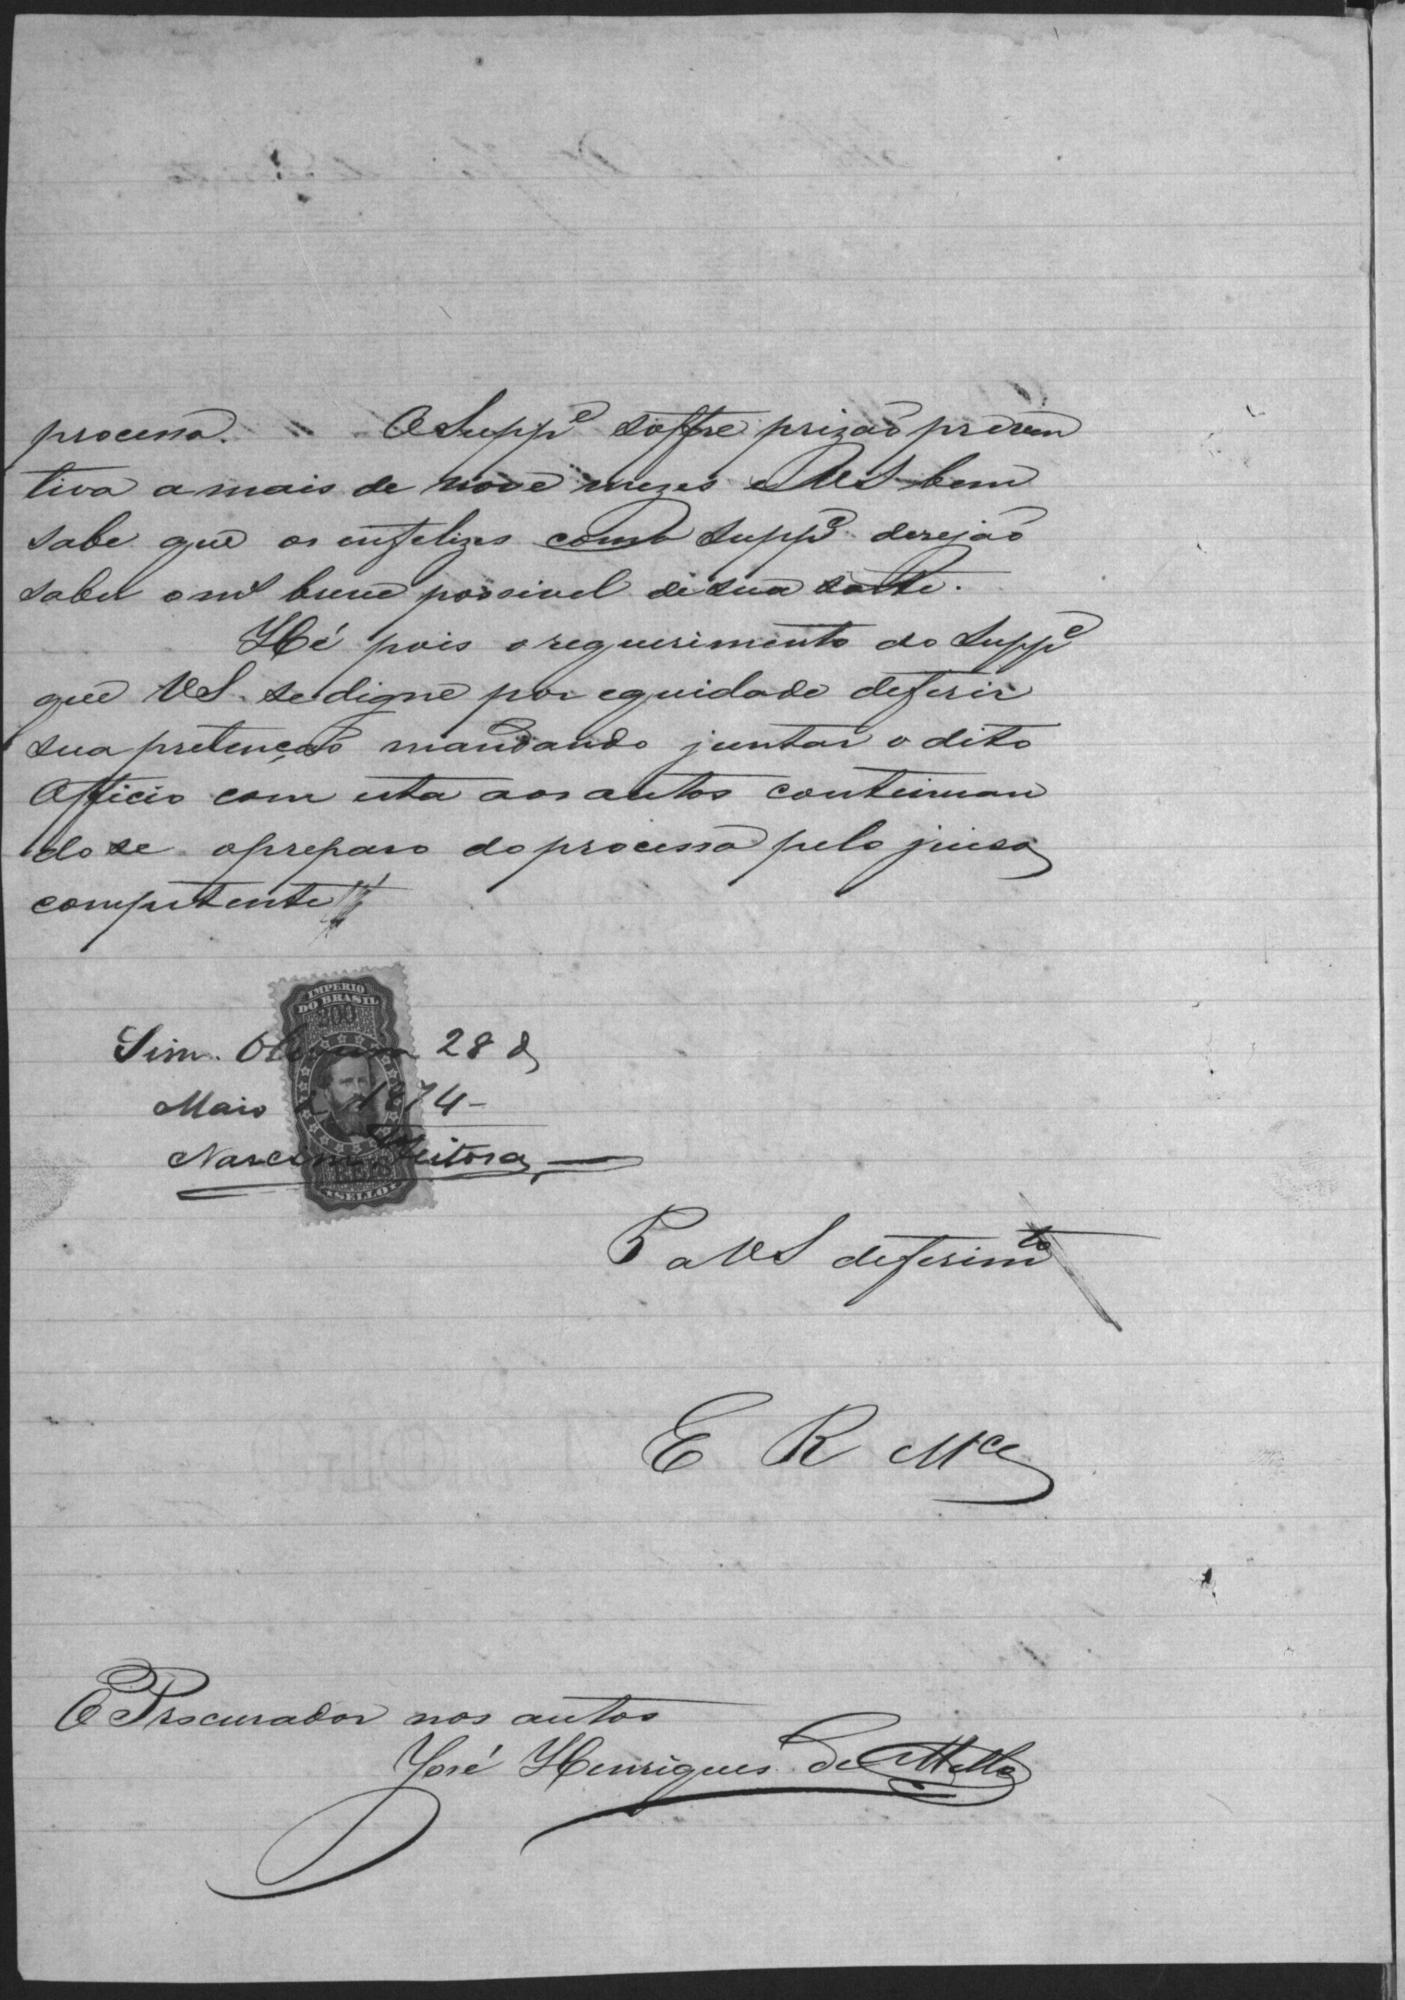 processo. O Supp.e soffre prizão preven
tiva a mais de nove mezes e VS bem
sabe que os infelizes como Supp.e desejão
saber o ms breve possivel de sua sorte.
Hé pois o requerimento do Supp.e
que VS. se digne por equidade deferir
sua pretenção mandando juntar o dito
Officio com esta aos autos continuan
do se o preparo do processo pelo juiso
competente
IMPERIO
DO BRASIL
200
Sim. 28 d
Maio 1874
Nascim.to Feitosa
REIS
SELLO
P a VS deferimto
E R Mce
O Procurador nos autos
José Henriques de Mello